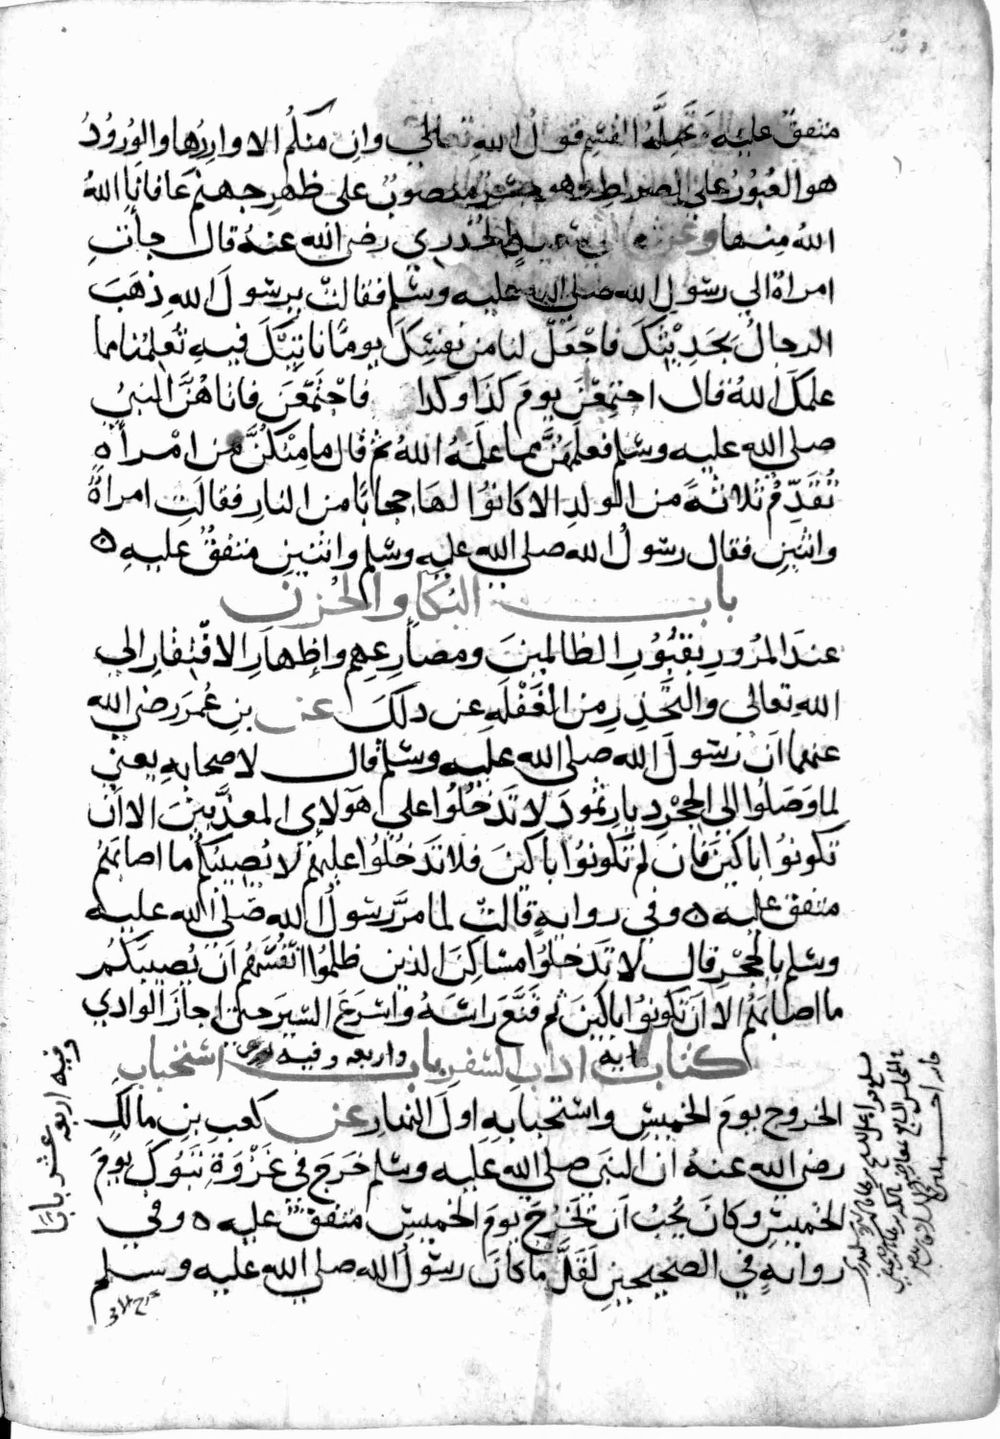 متفق عليه وتحلة القسم قول الله تعالى وان منكم الا واردها والورود
هو العبور على الصراط وهو جسر منصوب على ظهر جهنم عافانا الله
الله منها وعن ابي سعيد الخدري رضي الله عنه قال جأت
امراة الي رسول الله صلى الله عليه وسلم فقالت يرسول الله ذهب
الرجال بحديثك فاجعل لنا من نفسك يوما ناتيك فيه تعلمنا مما
علمك الله قال اجتمعن يوم كذا وكذا فاجتمعن فاتاهن النبي
صلى الله عليه وسلم فعلمهن مما علمه الله ثم قال ما منكن من امراه
تقدم ثلاثة من الولد الا كانوا لها حجابا من النار فقالت امراة
واثنين فقال رسول الله صلى الله عليه وسلم واثنين متفق عليه ه
باب البكا والحزن
عند المرور بقبور الظالمين ومصارعهم واظهار الافتقار الي
الله تعالى والتحذير من الغفله عن دلك عن بن عمر رضي الله
عنهما ان رسول الله صلى الله عليه وسلم قال لاصحابه يعني
لما وصلوا الى الحجر ديار ثمود لا تدخلوا على هولاي المعذبين الا ان
تكونوا باكين فان لم تكونوا باكين فلا تدخلوا عليهم لا يصيبكم ما اصابهم
متفق عليه ه وفي روايه قالت لما مر رسول الله صلى الله عليه
وسلم بالحجر قال لا تدخلوا مساكن الذين ظلموا انفسهم ان يصيبكم
ما اصابهم الا ان تكونوا باكين ثم قنع راسه واسرع السير حتى اجاز الوادي
كتاب اداب السفر باب استحباب
الخروج يوم الخميس واستحبابه اول النهار عن كعب بن مالك
رضي الله عنه ان النبي صلى الله عليه وسلم خرج في غزوة تبوك يوم
الخميس وكان يحب ان يخرج يوم الخميس متفق عليه ه وفي
روايه في الصحيحين لقل ما كان رسول الله صلى الله عليه وسلم
وفيه اربعة عشر بابا